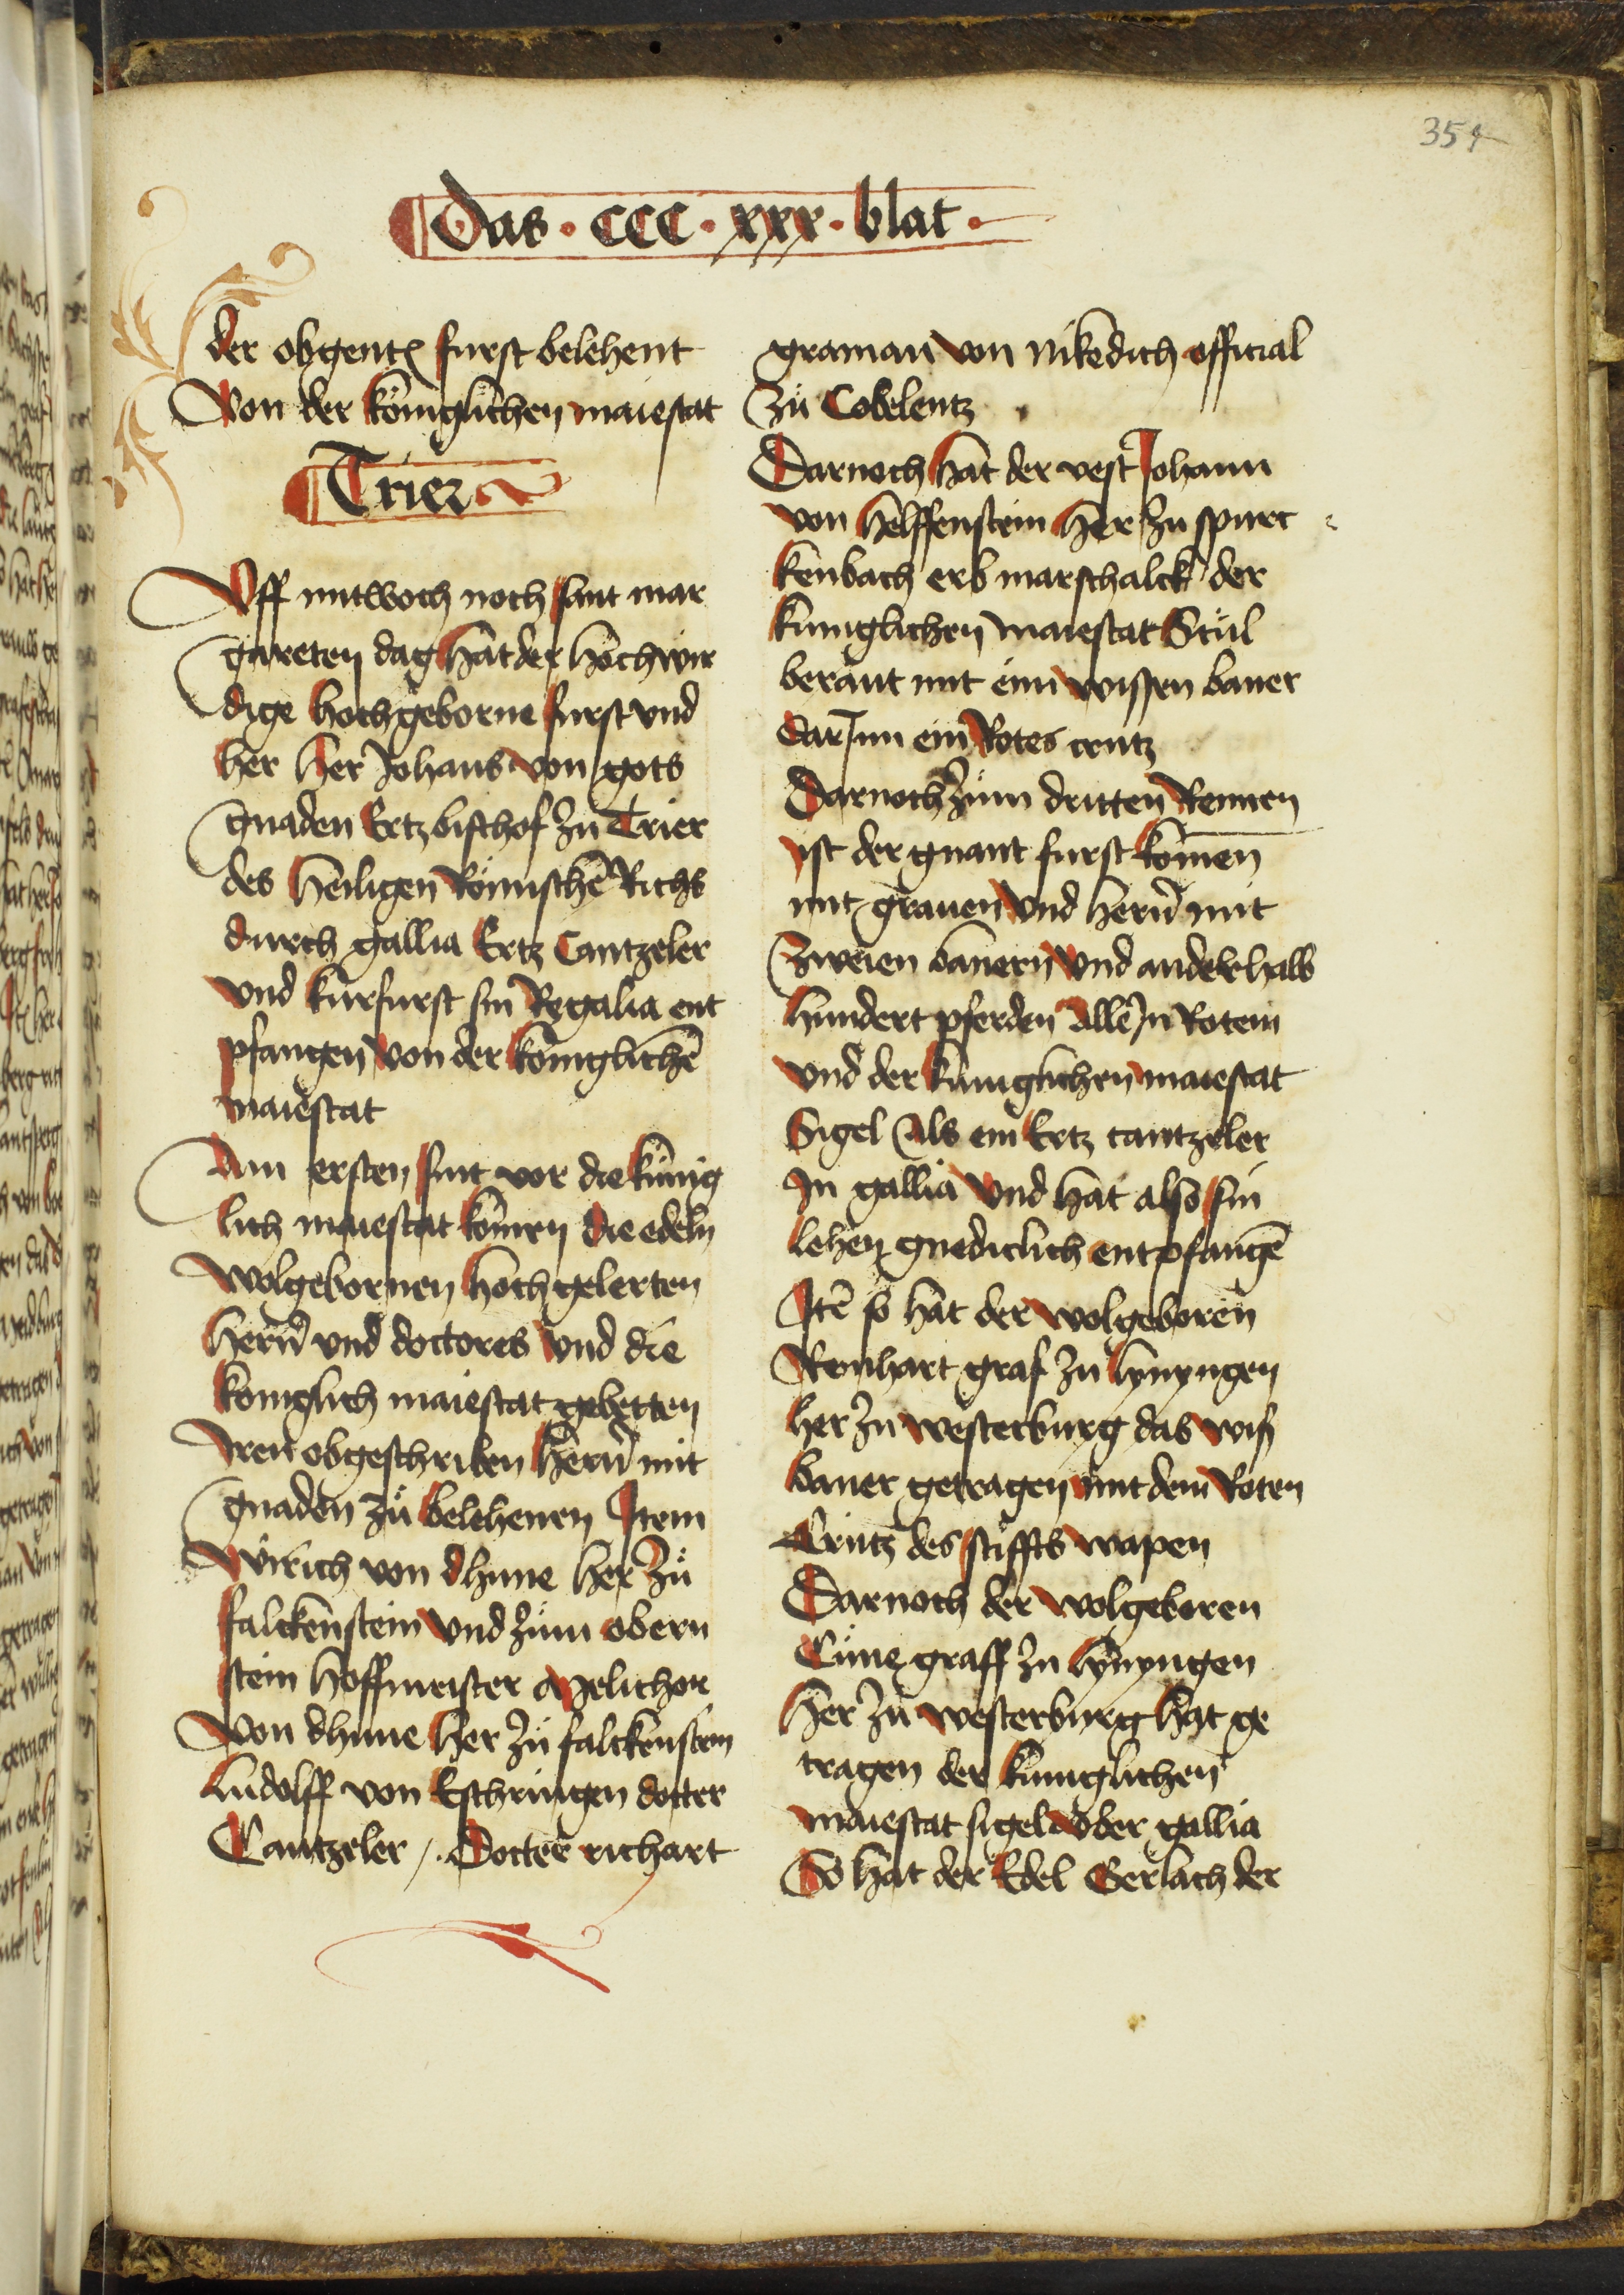 354
Das · CCC · xxx · blat ·
der obgent furst belehent
Von der königlichen maiestat
Trier
Vff mitwoch noch sant mar
gareten dag hat der hochwir
dige hochgeborne furst vnd
her her Johans von gots
gnaden Ertzbischof zu Trier
des heiligen Römischē Richs
durch gallia Ertz Cantzeler
vnd kurfurst sin Regalia ent
pfangen von der königlichē
maiestat
Am ersten sint vor die künig
lich maiestat komen die edeln
wolgebornen hochgelerten
hern vnd doctores vnd die
koniglich maiestat gebetten
iren obgeschriben hern mit
gnaden zů belehenen Item
Wirich von dhune her zů
falckenstein vnd zům obern
stein hoffmeister Melichor
von dhune her zů falckenstein
Ludolff von Eschringen docter
Cantzeler /. Docter richart
graman von nikedich official
Zů Cobelentz
Darnoch hat der vest Johann
von Helffenstein her zu spurc
kenbach erb marschalck der
kuniglichen maiestat Stůl
berant mit eim wissen baner
dar Inn ein Rotes crutz
Darnoch zům dritten Rennen
ist der gnant furst komen
mit grauen vnd hern mit
zweien banern vnd anderhalb
hundert pferden alle In Rotem
vnd der kuniglichen maiestat
Sigel als ein Ertz cantzeler
In gallia vnd hat also sin
lehen gnediclich entpfangē
Itē so hat der wolgeboren
Reinhart graf zu lynyngen
her zu westerburg das wiß
baner getragen mit dem Roten
Crutz des stiffts wapen
Darnoch der wolgeboren
Cůne graff zu lynyngen
her zu westerburg hat ge
tragen der kuniglichen
maiestat sigel vber gallia
So hat der Edel Gerlach der